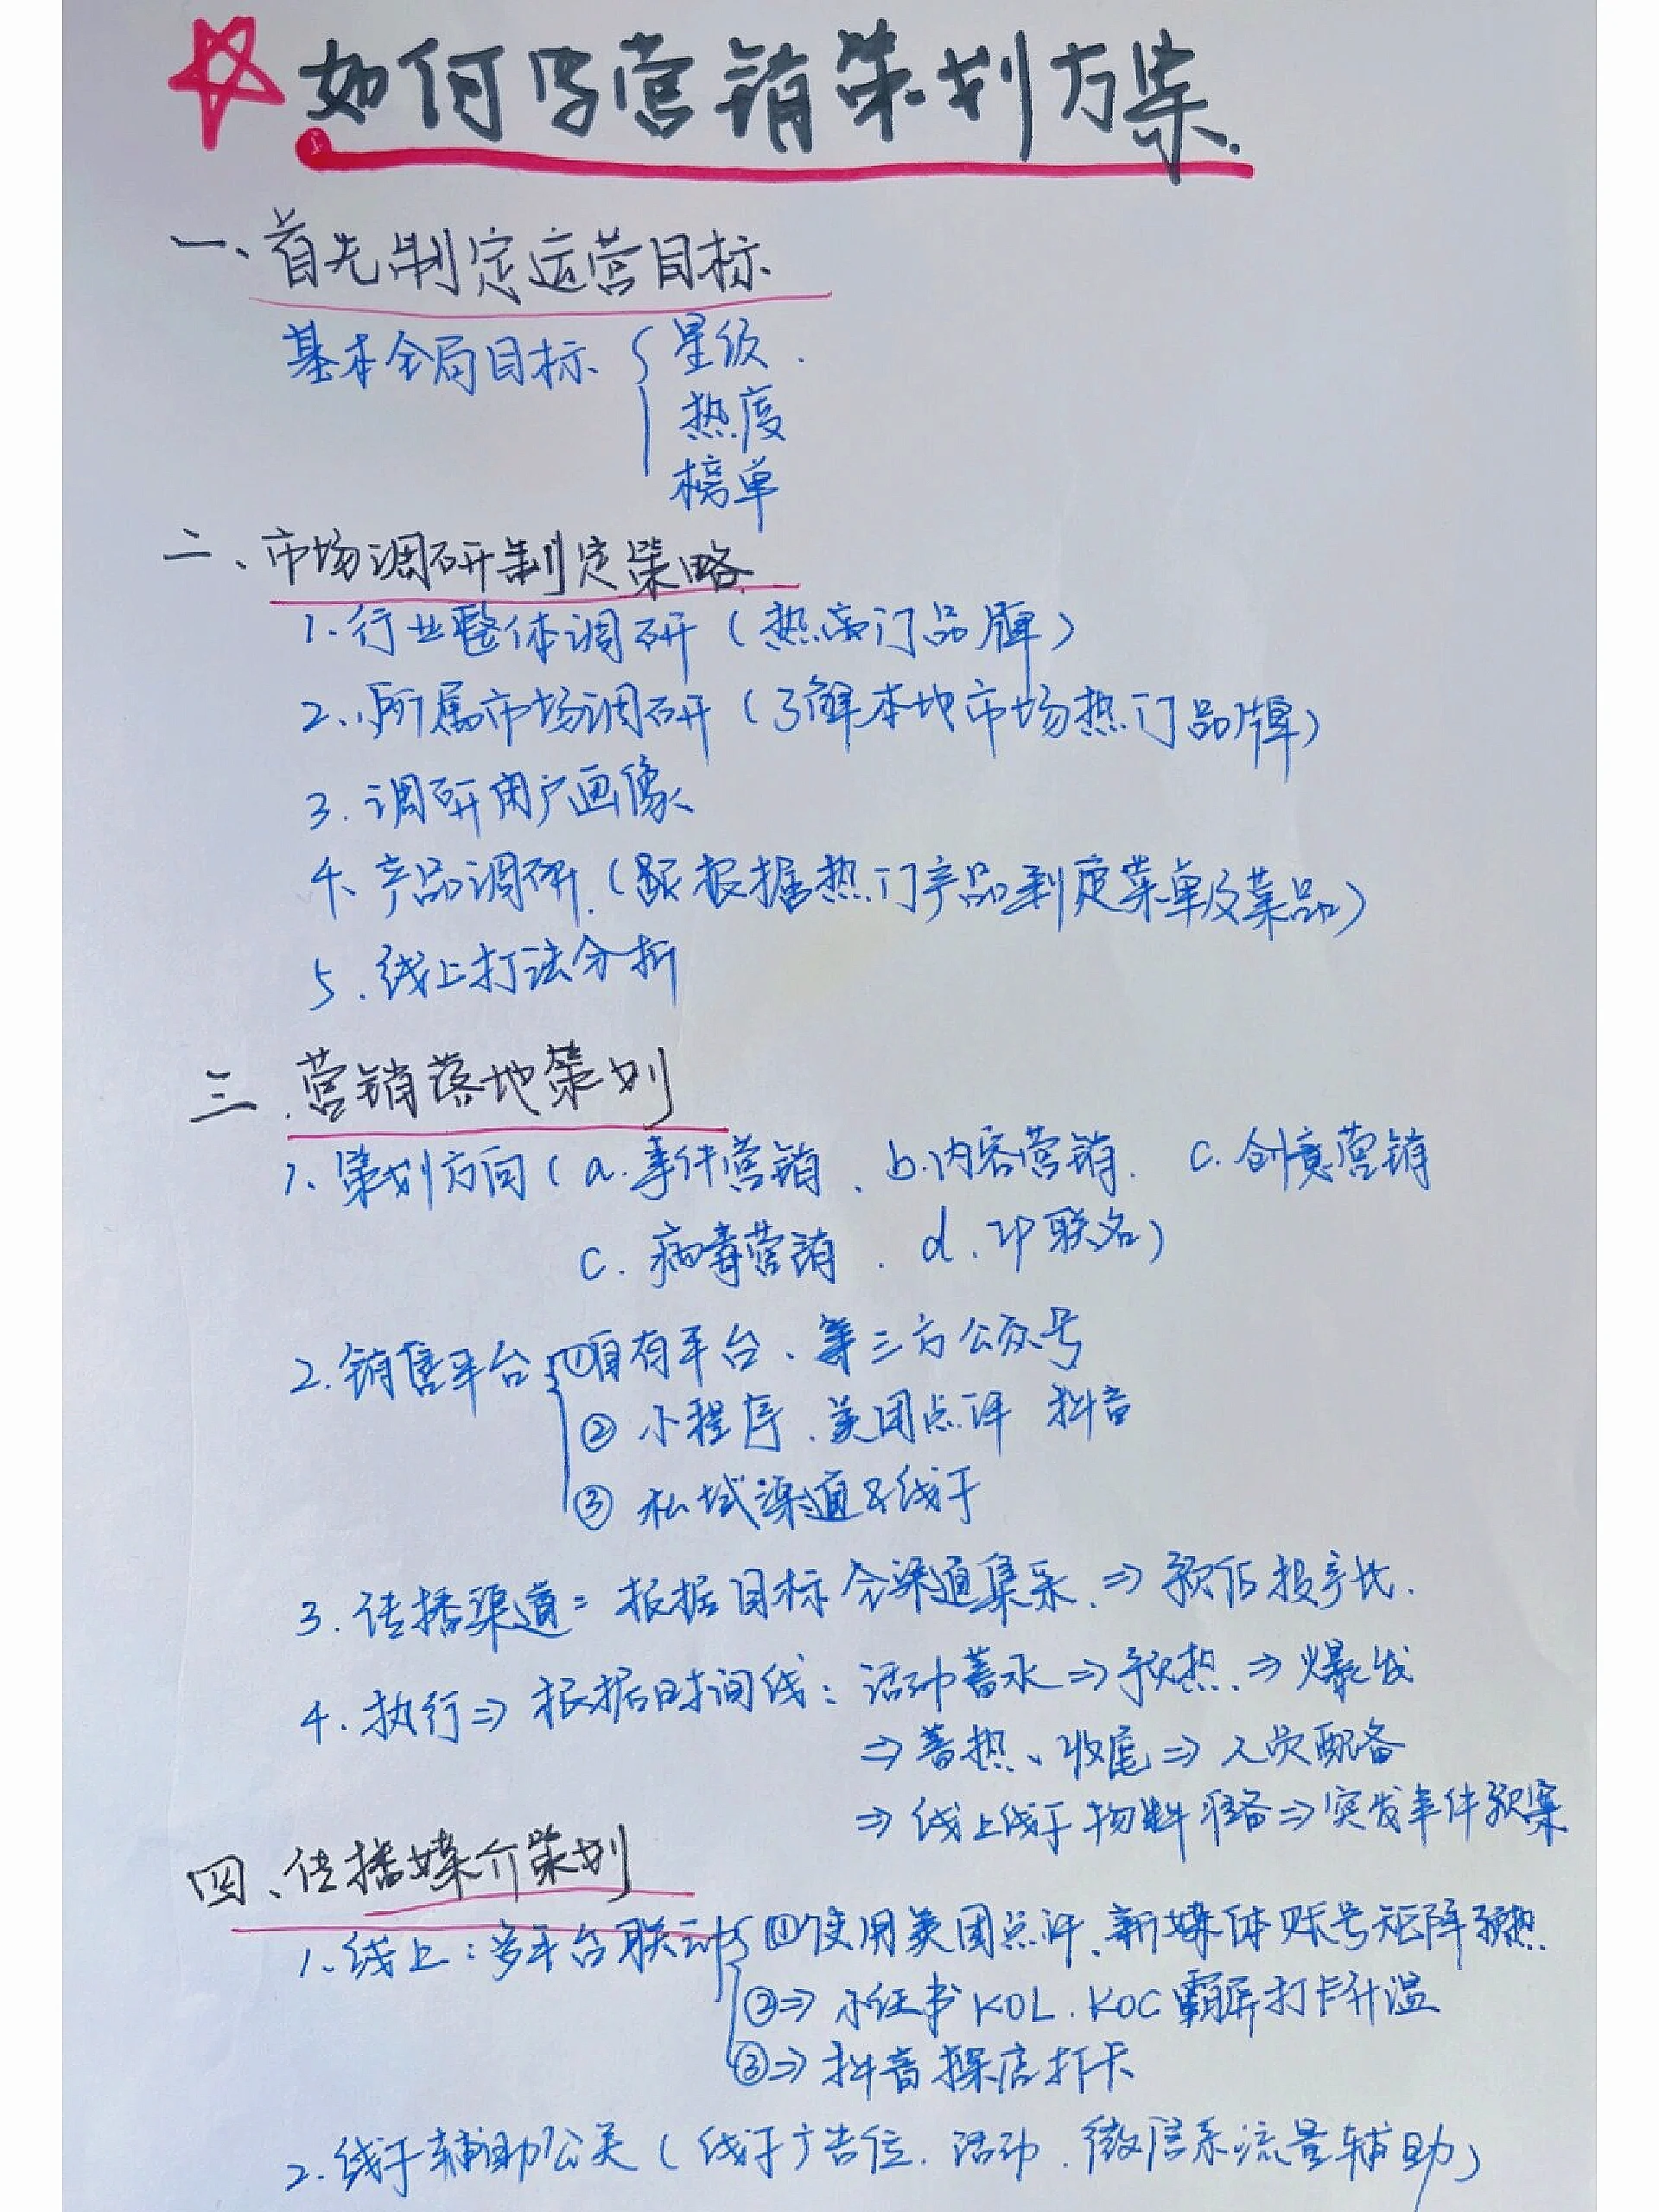 如何写营销策划方案.
一、首先制定运营目标
基本全局目标 { 星级.
热度
榜单
二、市场调研制定策略
1.行业整体调研(热门品牌)
2、所属市场调研(了解本地市场热门品牌)
3.调研用户画像
4、产品调研.(根据热门产品制定菜单及菜品)
5.线上打法分析
三.营销落地策划
1、策划方向(a.事件营销、b.内容营销. c.创意营销
c.病毒营销. d.IP联名)
2.销售平台 { ①自有平台、第三方公众号
② 小程序.美团点评 抖音
③ 私域渠道&线下
3.传播渠道:根据目标全渠道集采.⇒预估投产比.
4.执行⇒根据时间线:活动蓄水⇒预热.⇒爆发
⇒蓄热、收尾⇒人员配备
⇒线上线下物料准备⇒突发事件预案
四、传播媒介策划
1、线上:多平台联动 { ①使用美团点评、新媒体账号矩阵预热
②⇒小红书KOL.KOC霸屏打卡升温
③⇒抖音探店打卡
2.线下辅助公关(线下广告位.活动.微信系流量辅助)